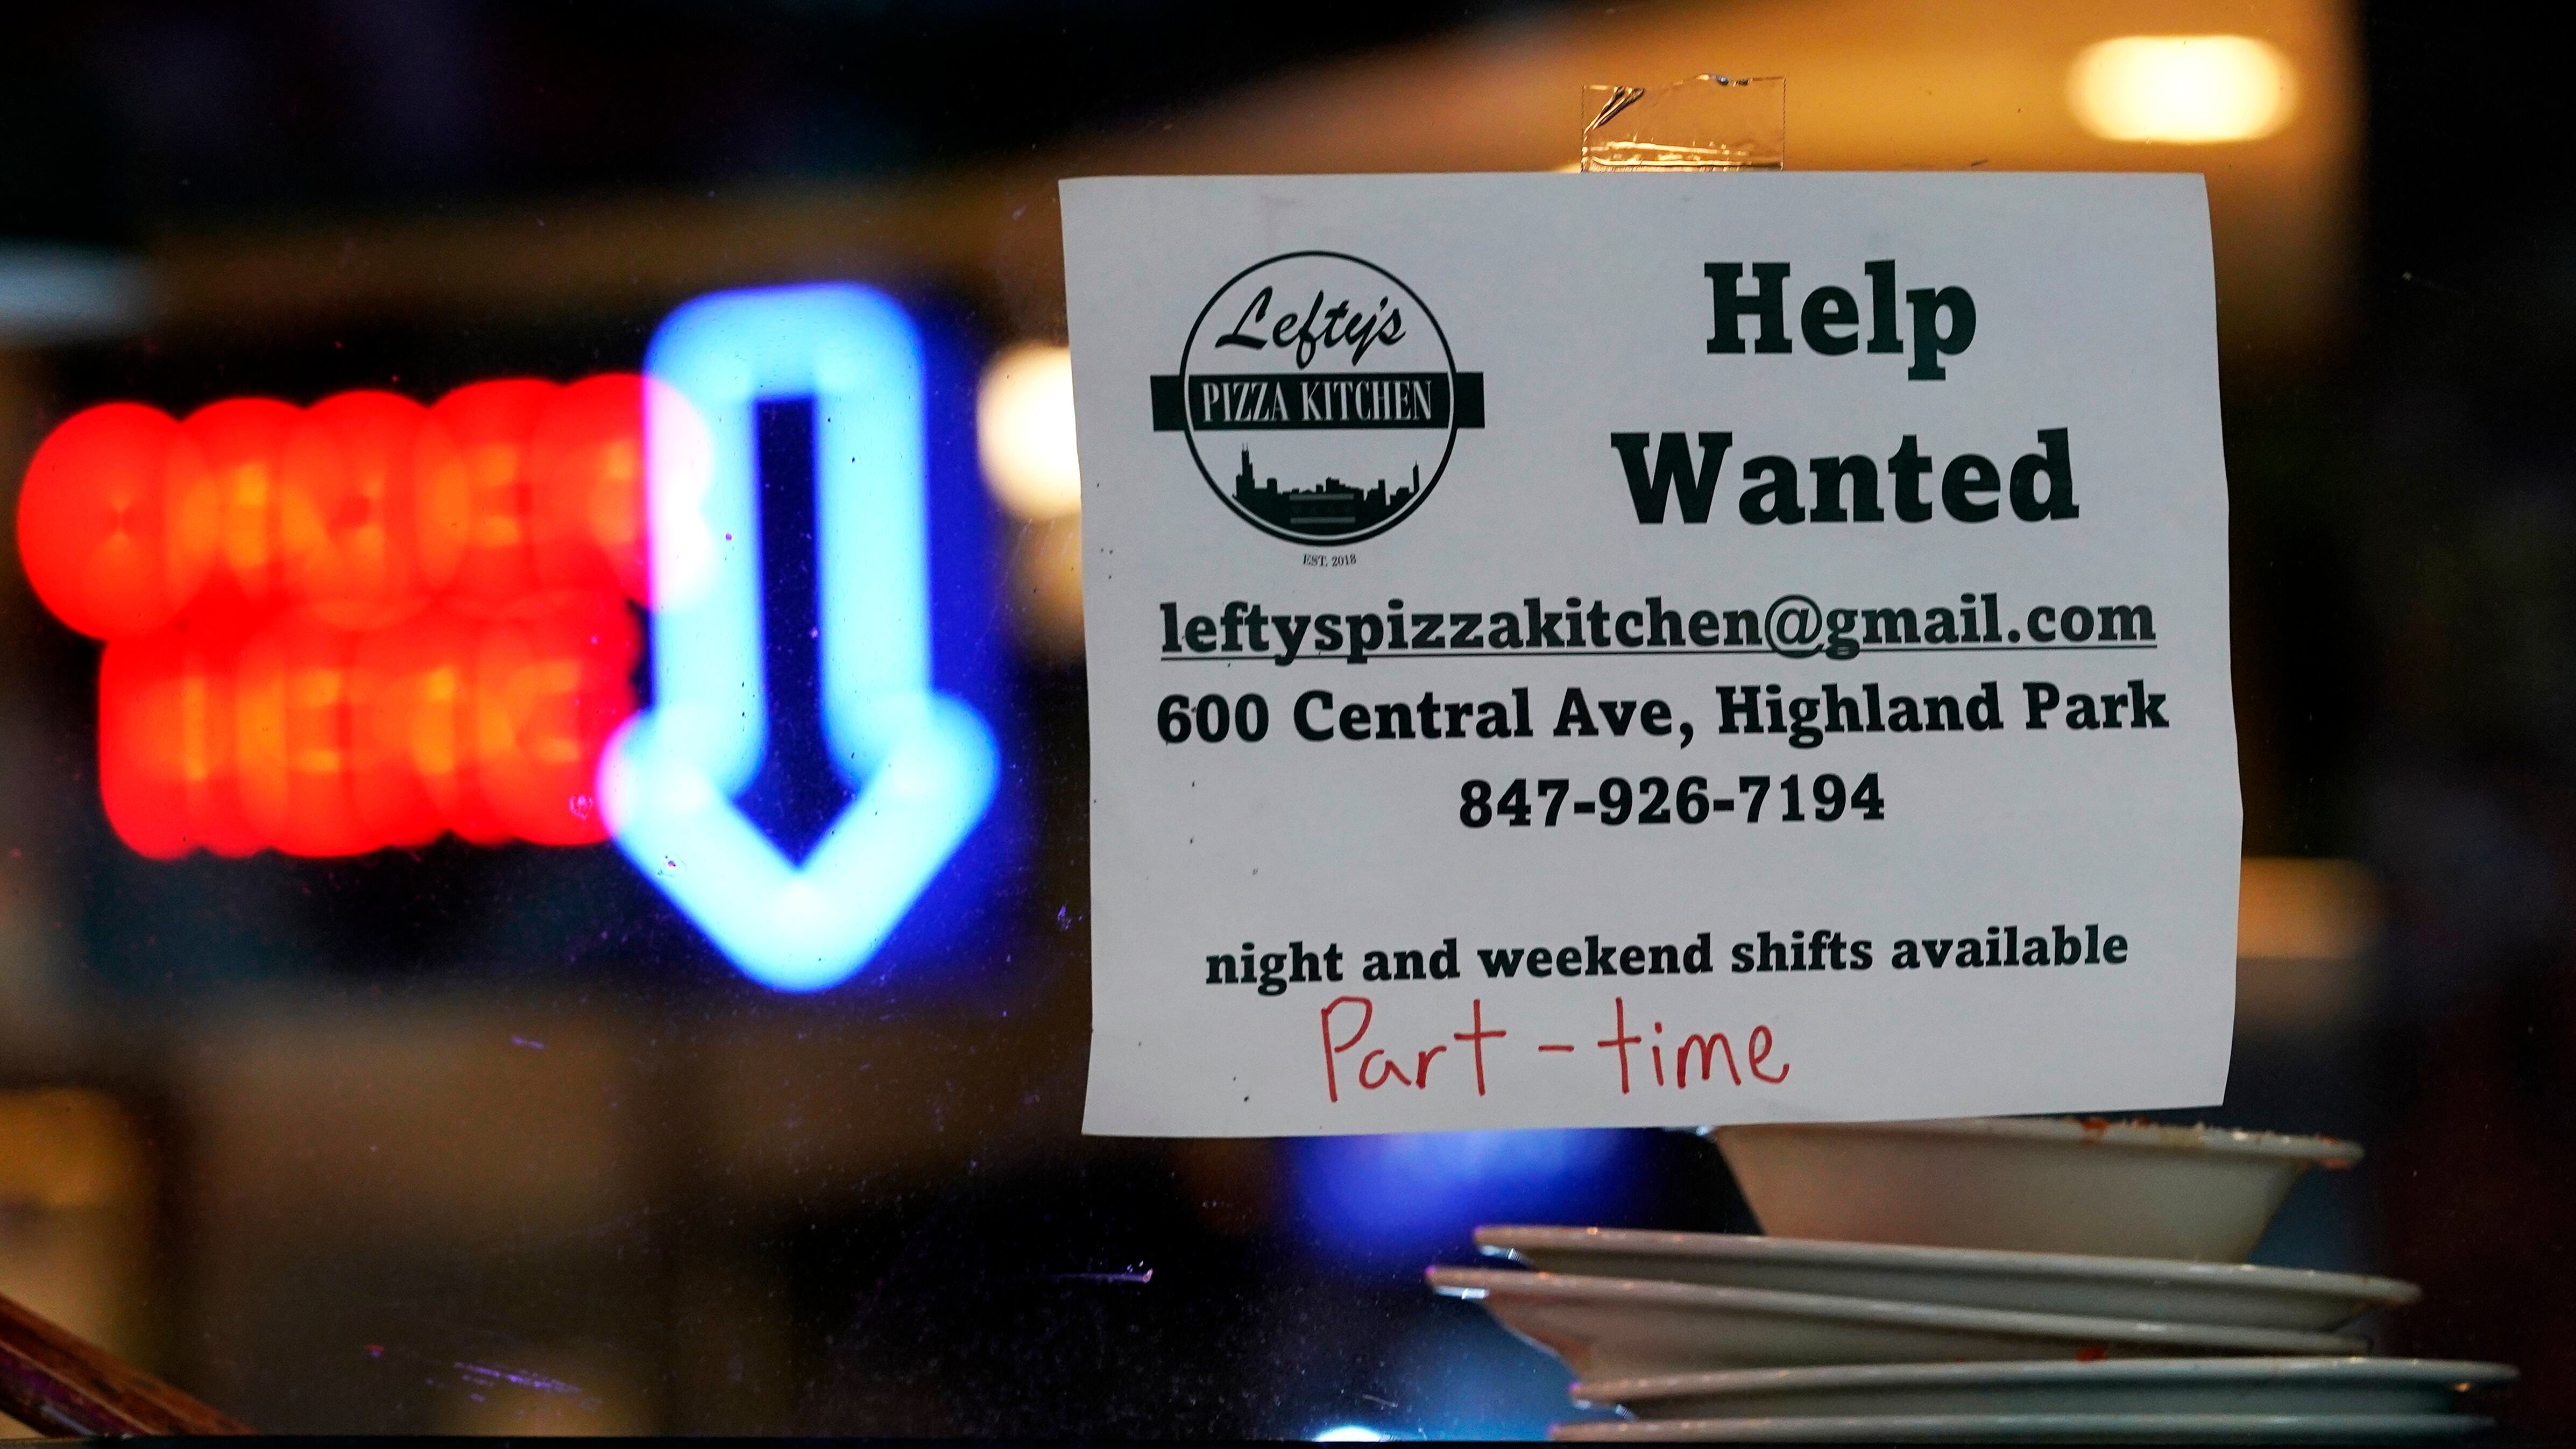 Lefty's
PIZZA KITCHEN
EST. 2018
Help
Wanted
leftyspizzakitchen@gmail.com
600 Central Ave, Highland Park
847-926-7194
night and weekend shifts available
Part-time